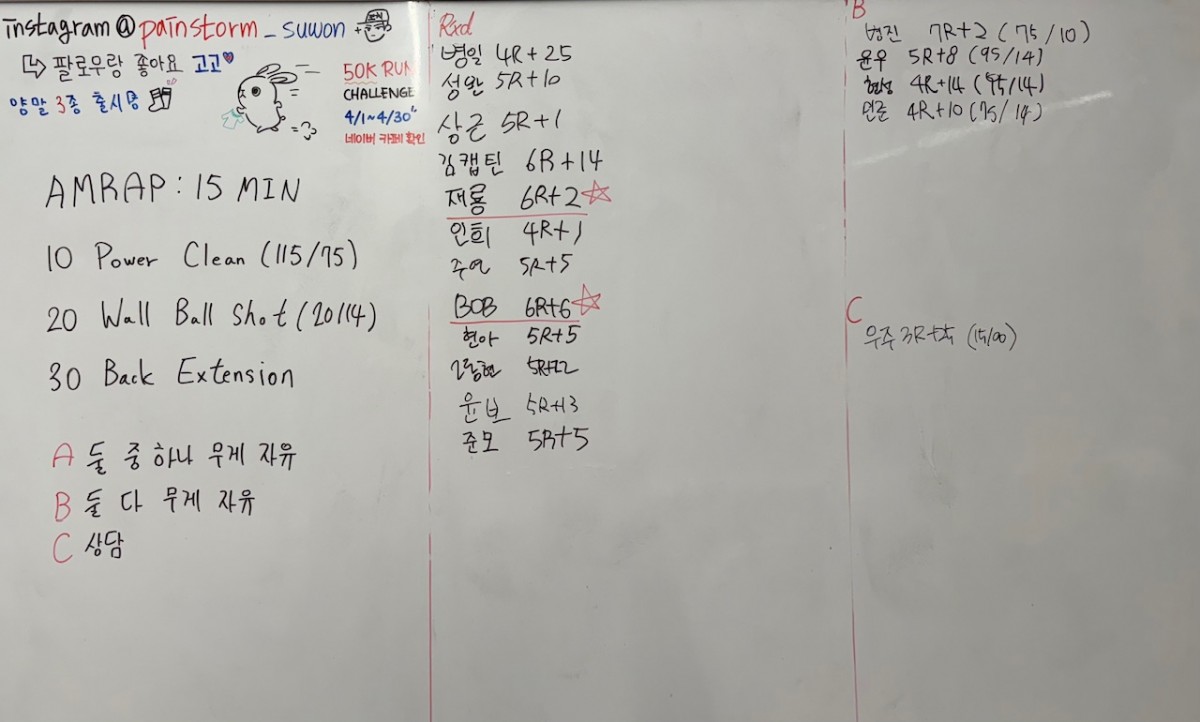 instagram@painstorm_suwon
팔로우랑 좋아요 고고
양말 3종 출시중
50K RUN
CHALLENGE
4/1~4/30
네이버 카페 확인
AMRAP : 15 MIN
10 Power Clean (115/75)
20 Wall Ball Shot (20/14)
30 Back Extension
A 둘 중 하나 무게 자유
B 둘 다 무게 자유
C 상담
Rxd
병일 4R+25
성완 5R+10
상근 5R+1
김캡틴 6R+14
재룡 6R+2
인희 4R+1
5R+5
BOB 6R+6
현아 5R+5
5R+22
윤보 5R+13
준모 5R+5
B
범진 7R+2 (75/10)
윤우 5R+8 (95/14)
현성 4R+14 (95/14)
민준 4R+10 (75/14)
C
우주